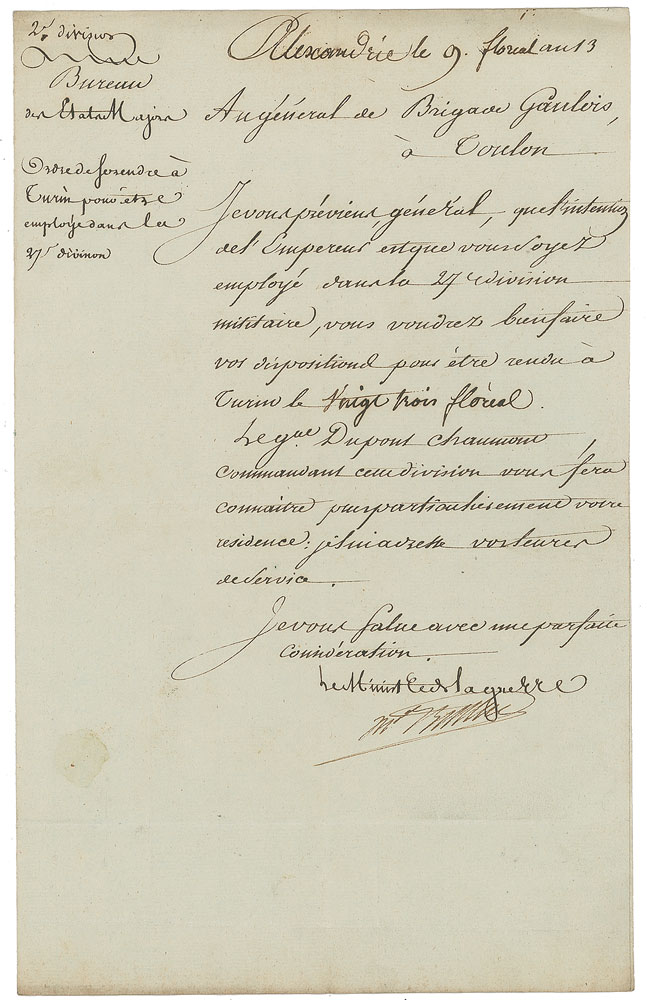 2e division
Bureau
des Etats Majors
Ordre de se rendre à
Turin pour être
employé dans la
27e division
Alexandrie le 9. floréal an 13
Au général de Brigade Gaulois,
à Toulon
Je vous préviens, général, que l'intention
de l'Empereur est que vous soyez
employé dans la 27 division
militaire, vous voudrez bien faire
vos dispositions pour être rendu à
Turin le Vingt trois floréal.
Le gal Dupont Chaumont,
commandant cette division vous fera
connaître plus particulièrement votre
residence; je lui adresse vos lettres
de service.
Je vous salue avec une parfaite
considération.
Le Ministre de la guerre
Mal Berthier